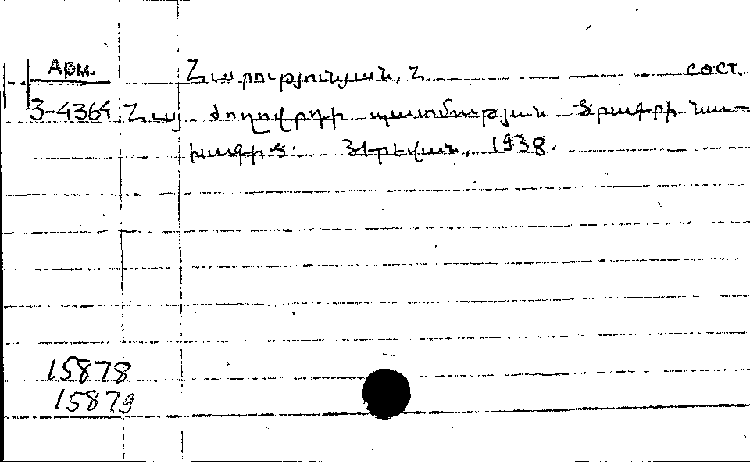 Арм.
Հարությունյան, Հ. сост.
3-4364 Հայ ժողովրդի պատմության ծրագրի նա-
խագիծ. Յերևան, 1938.
15878
15879